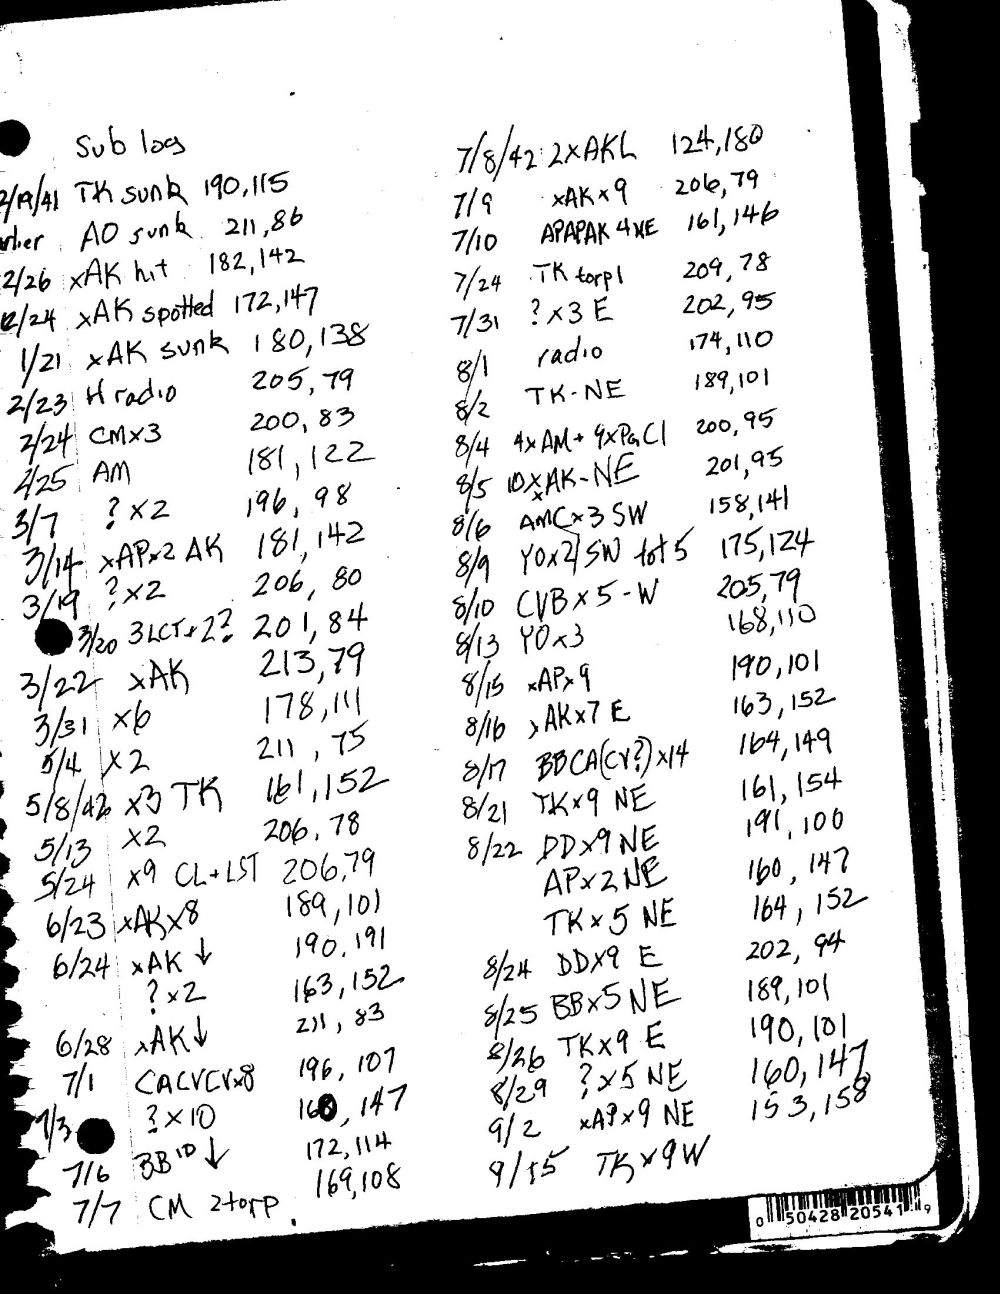 Sub log
2/19/41 TK sunk 190,115
rlier AO sunk 211,86
2/26 xAK hit 182,142
12/24 xAK spotted 172,147
1/21 xAK sunk 180,138
2/23 H radio 205,79
2/24 CMx3 200,83
2/25 AM 181,122
3/7 ?x2 196,98
3/14 xAPx2 AK 181,142
3/19 ?x2 206,80
3/20 3LCT+2? 201,84
3/22 xAK 213,79
3/31 x6 178,111
5/4 x2 211,75
5/8/42 x3 TK 161,152
5/13 x2 206,78
5/24 x9 CL+LST 206,79
6/23 xAKx8 189,101
6/24 xAK ↓ 190,191
?x2 163,152
6/28 xAK↓ 211,83
7/1 CACVCVx8 196,107
7/3 ?x10 160,147
7/6 BB ID ↓ 172,114
7/7 CM 2torp. 169,108
7/8/42: 2xAKL 124,180
7/9 xAKx9 206,79
7/10 APAPAK 4xE 161,146
7/24 TK torp1 209,78
7/31 ?x3 E 202,95
8/1 radio 174,110
8/2 TK-NE 189,101
8/4 4xAM+ 9xPaCl 200,95
8/5 10xxAK-NE 201,95
8/6 AMCx3 SW 158,141
8/9 YOx2/SW tot 5 175,124
8/10 CVBx5-W 205,79
8/13 YOx3 168,110
8/15 xAPx9 190,101
8/16 xAKx7 E 163,152
8/17 BBCA(CV?)x14 164,149
8/21 TKx9 NE 161,154
8/22 DDx9 NE 191,100
APx2 NE 160,147
TKx5 NE 164,152
8/24 DDx9 E 202,94
8/25 BBx5 NE 189,101
8/26 TKx9 E 190,101
8/29 ?x5 NE 160,147
9/2 xAPx9 NE 153,158
9/15 TKx9W
0 50428 20541 9